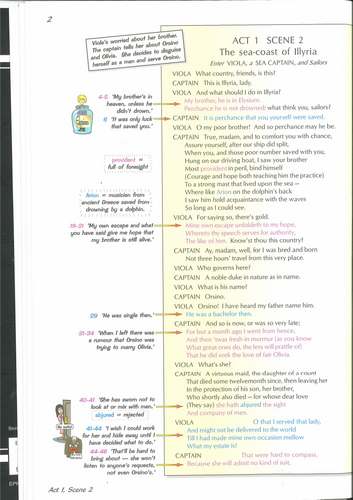 2
Viola's worried about her brother.
The captain tells her about Orsino
and Olivia. She decides to disguise
herself as a man and serve Orsino.
ACT 1 SCENE 2
The sea-coast of Illyria
Enter VIOLA, a SEA CAPTAIN, and Sailors
VIOLA What country, friends, is this?
CAPTAIN This is Illyria, lady.
VIOLA And what should I do in Illyria?
4-5 'My brother's in
heaven, unless he
didn't drown.'
My brother, he is in Elysium.
Perchance he is not drowned: what think you, sailors?
6 'It was only luck
that saved you.'
CAPTAIN It is perchance that you yourself were saved.
VIOLA O my poor brother! And so perchance may he be.
CAPTAIN True, madam, and to comfort you with chance,
Assure yourself, after our ship did split,
When you, and those poor number saved with you,
Hung on our driving boat, I saw your brother
provident =
full of foresight
Most provident in peril, bind himself
(Courage and hope both teaching him the practice)
To a strong mast that lived upon the sea –
Arion = musician from
ancient Greece saved from
drowning by a dolphin.
Where like Arion on the dolphin's back
I saw him hold acquaintance with the waves
So long as I could see.
VIOLA For saying so, there's gold.
19-21 'My own escape and what
you have said give me hope that
my brother is still alive.'
Mine own escape unfoldeth to my hope,
Whereto thy speech serves for authority,
The like of him. Know'st thou this country?
CAPTAIN Ay, madam, well, for I was bred and born
Not three hours' travel from this very place.
VIOLA Who governs here?
CAPTAIN A noble duke in nature as in name.
VIOLA What is his name?
CAPTAIN Orsino.
VIOLA Orsino! I have heard my father name him.
29 'He was single then.'
He was a bachelor then.
CAPTAIN And so is now, or was so very late;
31-34 'When I left there was
a rumour that Orsino was
trying to marry Olivia.'
For but a month ago I went from hence,
And then 'twas fresh in murmur (as you know
What great ones do, the less will prattle of)
That he did seek the love of fair Olivia.
VIOLA What's she?
CAPTAIN A virtuous maid, the daughter of a count
That died some twelvemonth since, then leaving her
In the protection of his son, her brother,
Who shortly also died – for whose dear love
40-41 'She has sworn not to
look at or mix with men.'
abjured = rejected
(They say) she hath abjured the sight
And company of men.
41-44 'I wish I could work
for her and hide away until I
have decided what to do.'
VIOLA O that I served that lady,
And might not be delivered to the world
Till I had made mine own occasion mellow
What my estate is!
44-46 'That'll be hard to
bring about — she won't
listen to anyone's requests,
not even Orsino's.'
CAPTAIN That were hard to compass,
Because she will admit no kind of suit,
Act 1, Scene 2